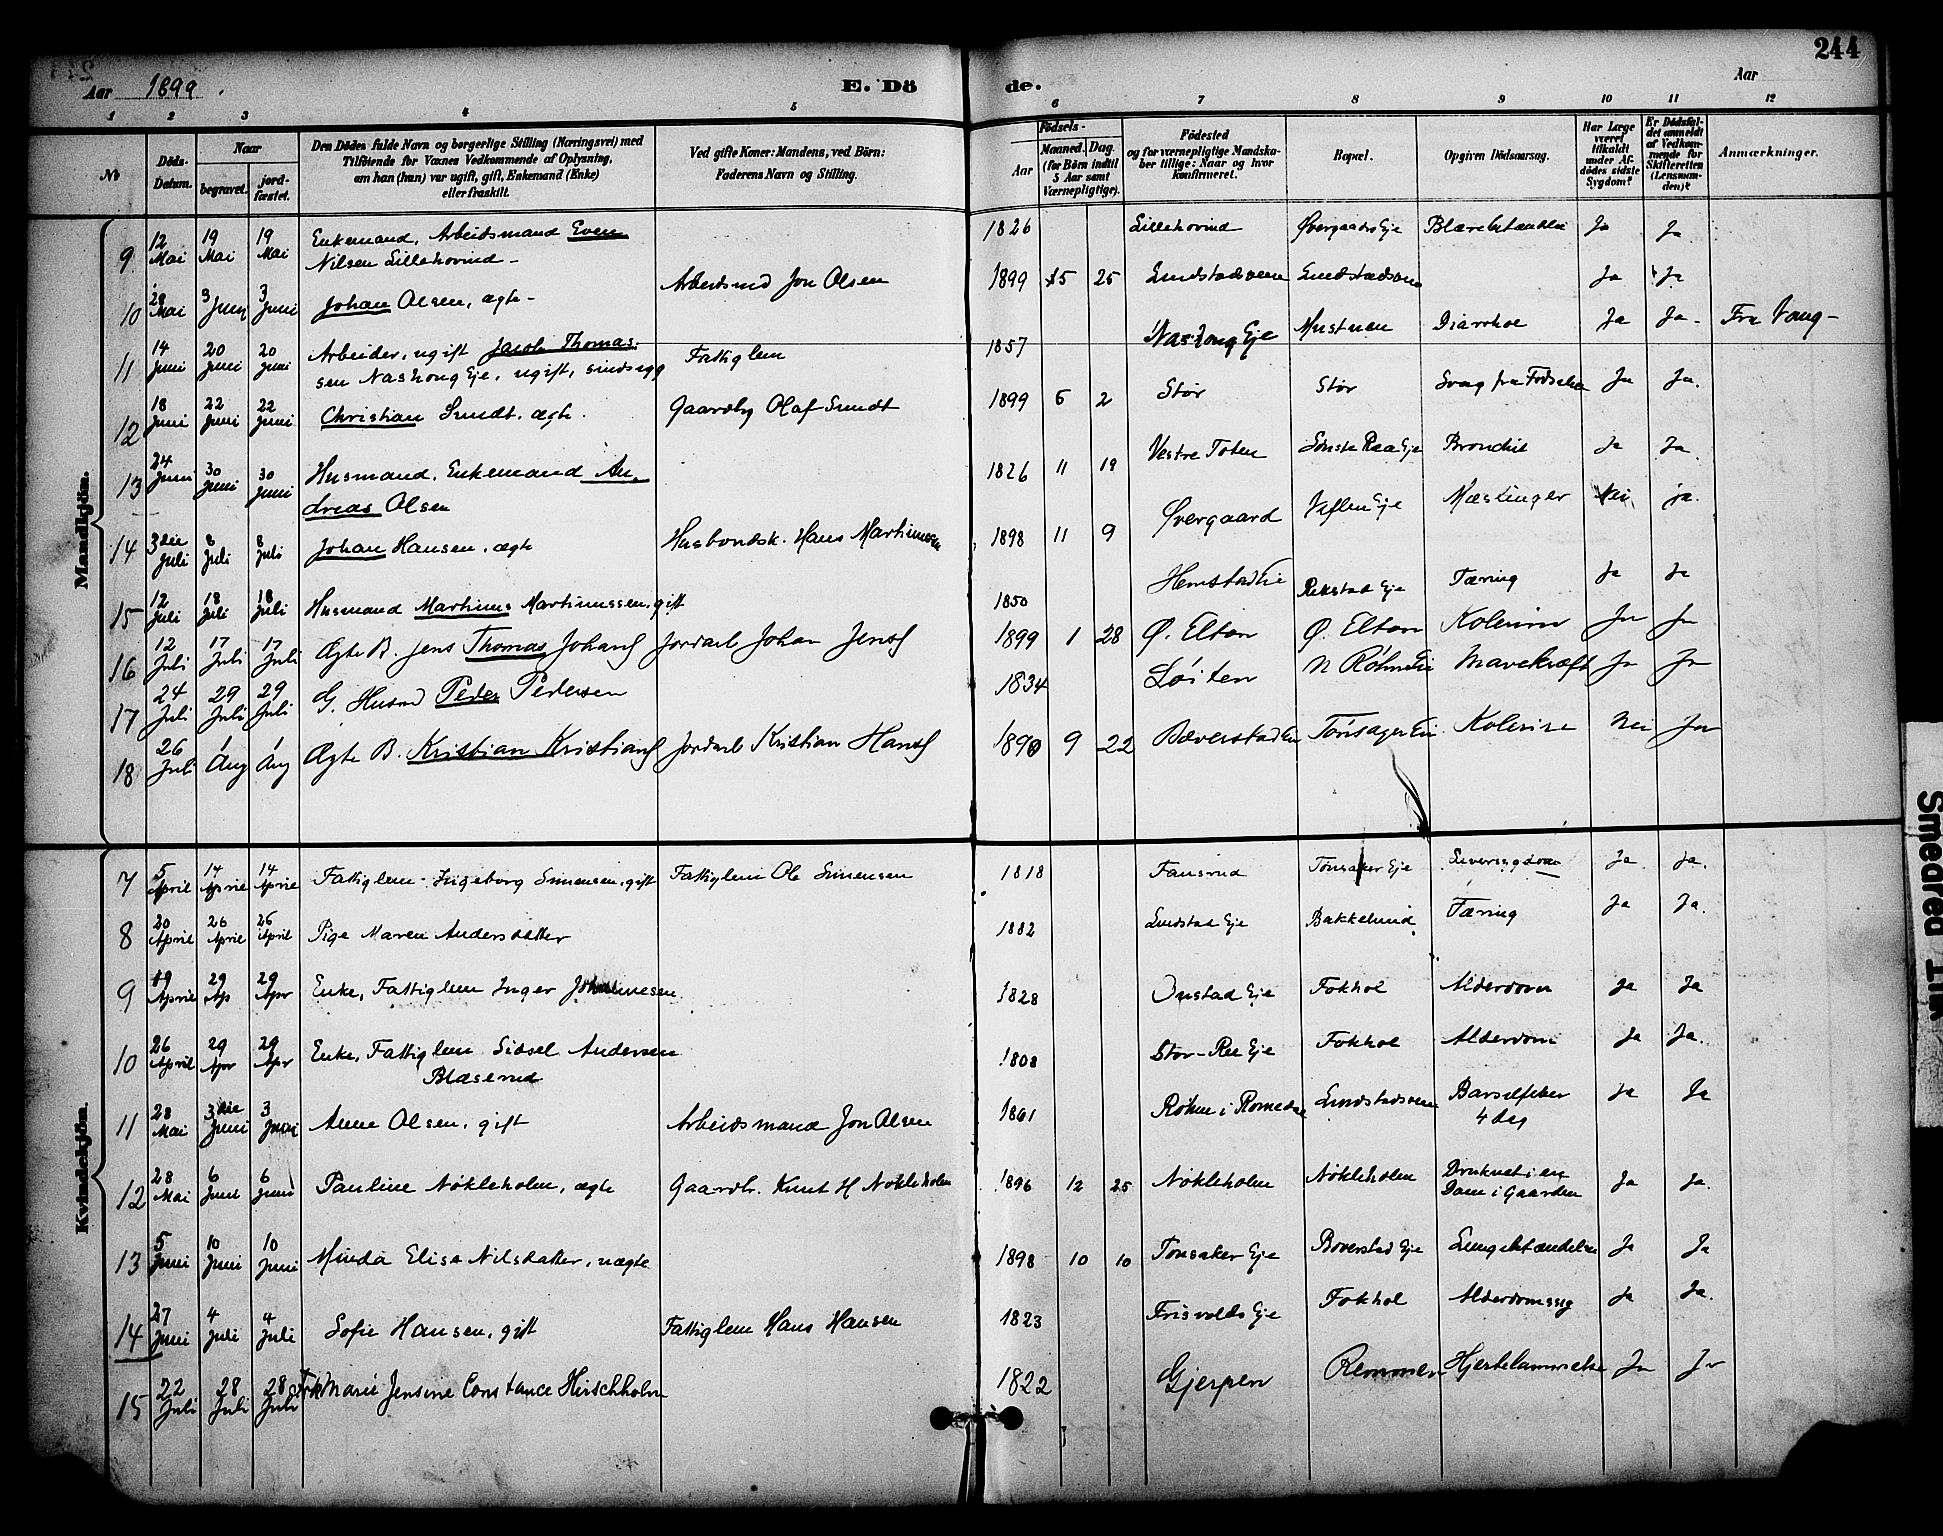 244
Aar 1899.
E. Dö
de.
Aar
1 2 3 4 5 6 7 8 9 10 11 12
No
Döds-Datum.
Naar
begravet.
jord-fæstet.
Den Dödes fulde Navn og borgerlige Stilling (Næringsvei) med
Tilföiende for Voxnes Vedkommende af Oplysning,
om han (hun) var ugift, gift, Enkemand (Enke)
eller fraskilt.
Ved gifte Koner: Mandens, ved Börn:
Faderens Navn og Stilling.
Födsels-
Aar
Maaned. Dag.
(for Börn indtil
5 Aar samt
Værnepligtige).
Födested
og for værnepligtige Mandska-
ber tillige: Naar og hvor
konfirmeret.
Bopæl.
Opgiven Dödsaarsag.
Har Læge
været
tilkaldt
under Af-
dödes sidste
Sygdom?
Er Dödsfal-
det anmeldt
af Vedkom-
mende for
Skifteretten
(Lensman-
den)?
Anmærkninger.
Mandkjön.
9 12 Mai 19 Mai 19 Mai Enkemand, Arbeidsmand Even 1826 Lillehovind Øvergaards Eje Ja Ja.
Nilsen Lillehovind -
10 28 Mai 3 Juni 3 Juni Johan Olsen, ægte - Arbeidsmd Jon Olsen 1899 5 25 Lundstadsveen Lundstadsveen Ja Ja
11 14 Juni 20 Juni 20 Juni Arbeider, ugift Jacob Thomas- Fattiglem 1857 Eje Diarrhoe Ja Ja - Fra Vang -
sen Eje, ugift, sindsyg
12 18 Juni 22 Juni 22 Juni Christian Sundt, ægte. Gaardbr Olaf Sundt 1899 6 2 Stör Stör Svag fra Födselen Ja Ja.
13 24 Juni 30 Juni 30 Juni Husmand, Enkemand An- 1826 11 19 Vestre Toten Eje Bronchit Ja Ja.
dreas Olsen
14 3die Juli 8 Juli 8 Juli Johan Hansen, ægte Husbondsk. Hans Martinussen 1898 11 9 Øvergaard Viflen Eje Mæslinger Nei ja.
15 12 Juli 18 Juli 18 Juli Husmand Martinus Martinussen, gift 1850 Hemstad Eie Rekstad Eje Tæring Ja Ja
16 12 Juli 17 Juli 17 Juli Ægte B. Jens Thomas Johans Jordarb Johan Jens 1899 1 28 Ø. Elton Ø. Elton Kolerine Ja Ja
17 24 Juli 29 Juli 29 Juli G. Husmd Peder Pedersen 1834 Löiten Mavekræft Ja Ja
18 26 Juli 1 Aug 1 Aug Ægte B. Kristian Kristians Jordarb Kristian Hans 1890 9 22 Bæverstad Eie Tönsager Eie Kolerine Nei Ja
Kvindekjön.
7 5 April 14 April 14 April Fattiglem Ingeborg Simensen, gift Fattiglem Ole Simensen 1818 Fansrud Tönsaker Eje Leversygdom Ja Ja.
8 20 April 26 April 26 April Pige Maren Andersdatter 1882 Lundstad Eje Bakkelund Tæring Ja Ja.
9 19 April 29 Ap 29 Apr Enke, Fattiglem Inger Johannesen 1828 Onstad Eje Fokhol Alderdom Ja Ja
10 26 April 29 Apr 29 Apr Enke, Fattiglem Sidsel Andersen 1808 Stor-Ree Eje Fokhol Alderdom Ja Ja.
Blæserud
11 28 Mai 3die Juni 3 Juni Anne Olsen, gift Arbeidsmand Jon Olsen 1861 Röhne i Romedal Lundstadsveen Barselfeber Ja Ja
4 dag
12 28 Mai 6 Juni 6 Juni Pauline Nökleholm, ægte Gaardbr. Knut H Nökleholm 1896 12 25 Nökleholm Nökleholm Druknet i en Ja Ja.
Dam i Gaarden
13 5 Juni 10 Juni 10 Juni Minda Elise Nilsdatter, uægte 1898 10 10 Tönsaker Eje Boverstad Eje Lungebetændelse Ja Ja
14 27 Juni 4 Juli 4 Juli Sofie Hansen, gift Fattiglem Hans Hansen 1823 Frisvolds Eje Fokhol Alderdomssyg Ja Ja.
15 22 Juli 28 Juli 28 Juli Frk Marie Jensine Constance Hirschholm 1822 Gjerpen Remmen Hjertelammelse Ja Ja
Smeared Ink